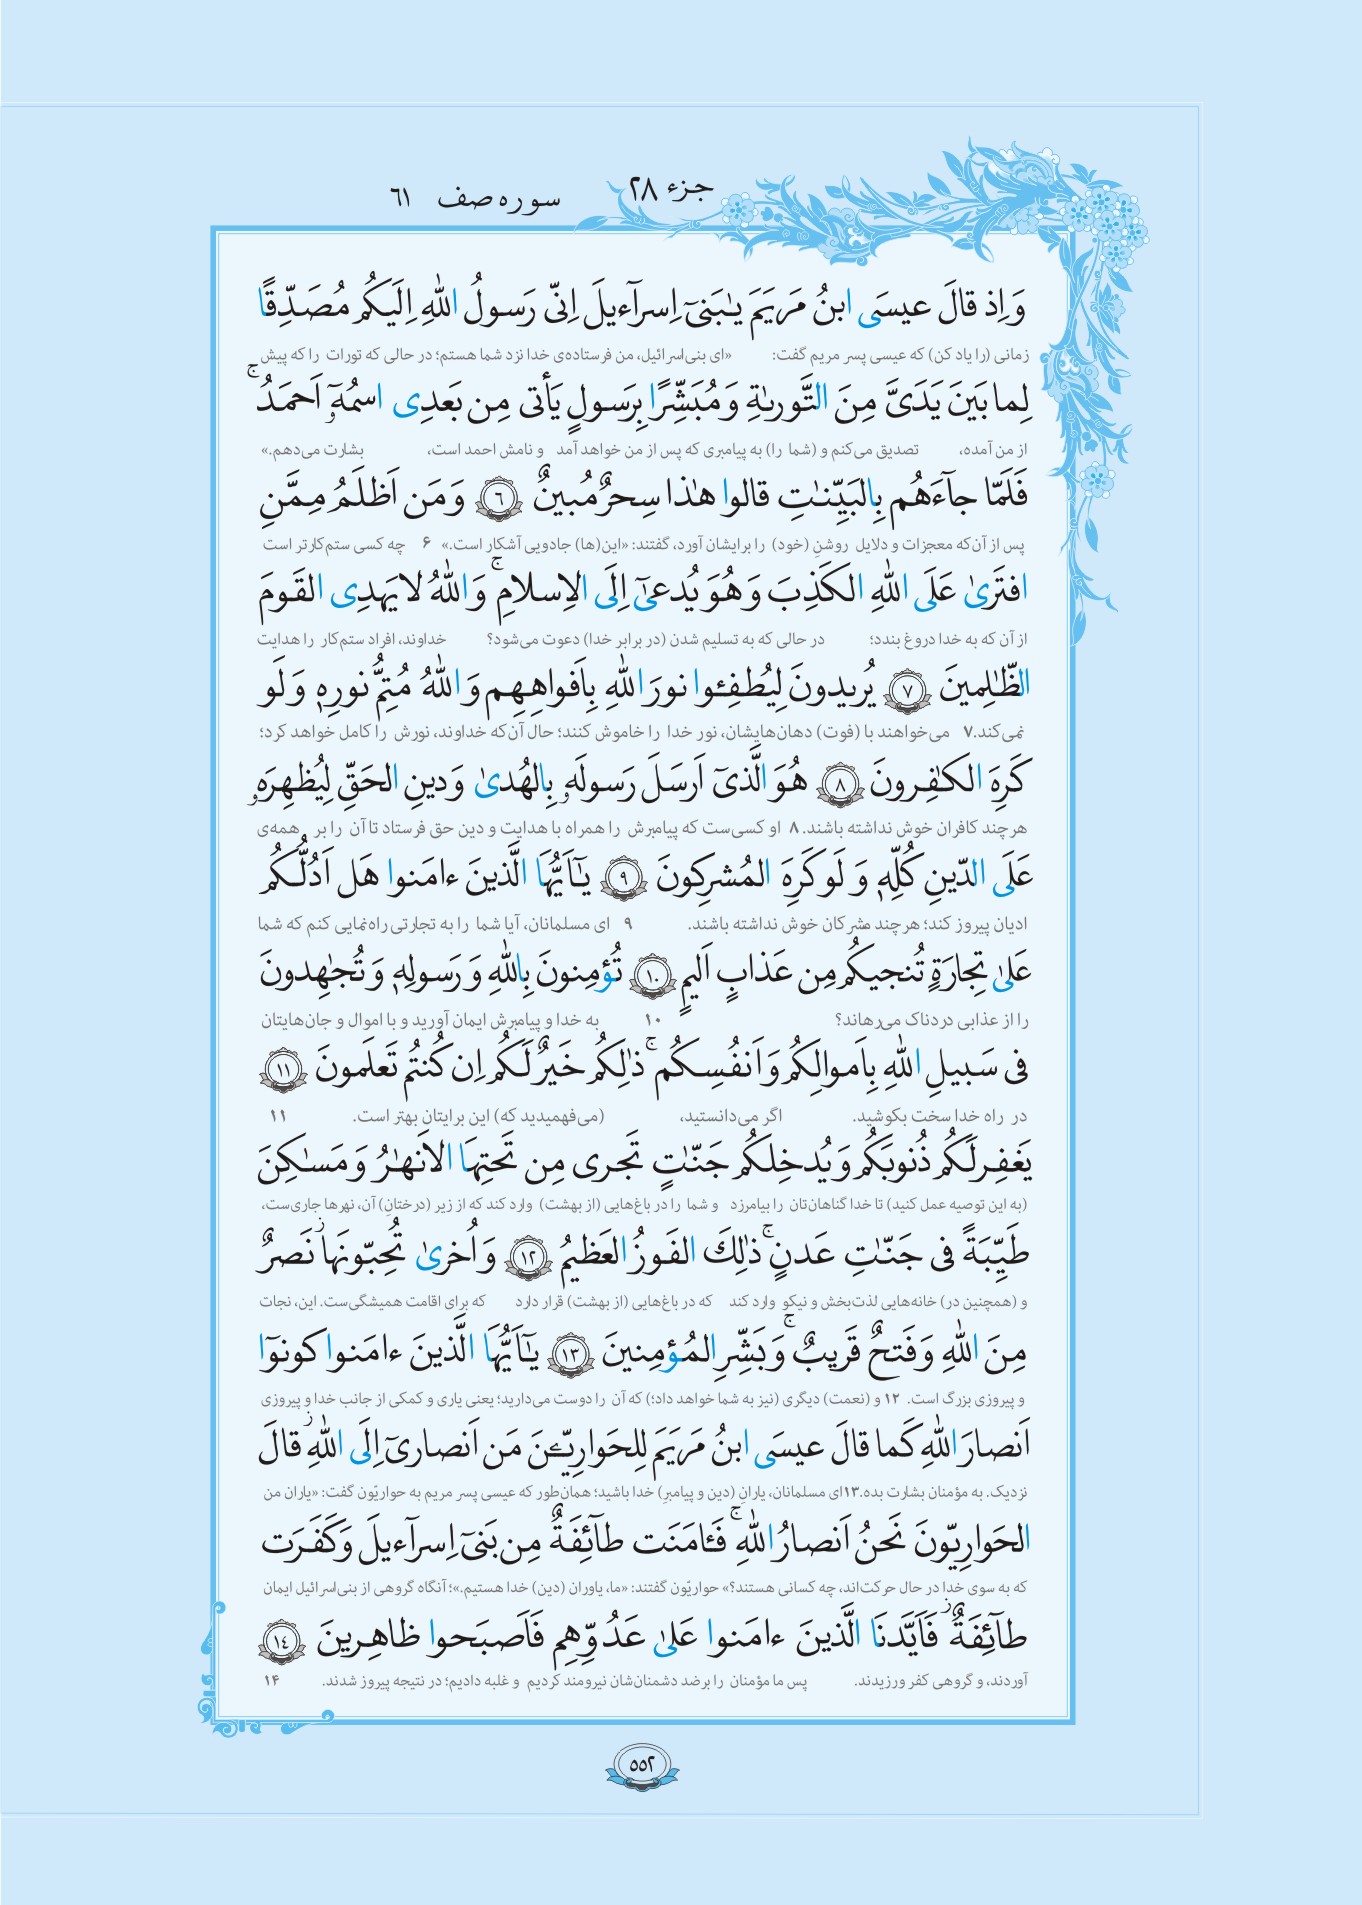 جزء ۲۸
سوره صف ۶۱
وَ اِذ قالَ عیسَی ابنُ مَریَمَ یـٰبَنیٓ اِسرآءیلَ اِنّی رَسولُ اللّٰهِ اِلَیکُم مُصَدِّقًا
زمانی (را یاد کن) که عیسی پسر مریم گفت: «ای بنی‌اسرائیل، من فرستاده‌ی خدا نزد شما هستم؛ در حالی که تورات را که پیش
لِما بَینَ یَدَیَّ مِنَ التَّوریٰةِ وَ مُبَشِّرًا بِرَسولٍ یَأتی مِن بَعدِی اسمُهٓو اَحمَدُۚ
از من آمده، تصدیق می‌کنم و (شما را) به پیامبری که پس از من خواهد آمد و نامش احمد است، بشارت می‌دهم.»
فَلَمّا جآءَهُم بِالبَیِّنـٰتِ قالوا هـٰذا سِحرٌ مُبینٌ ﴿٦﴾ وَ مَن اَظلَمُ مِمَّنِ
پس از آن‌که معجزات و دلایل روشنِ (خود) را برایشان آورد، گفتند: «این(ها) جادویی آشکار است.» ۶ چه کسی ستم‌کارتر است
افتَریٰ عَلَی اللّٰهِ الکَذِبَ وَ هُوَ یُدعیٰٓ اِلَی الاِسلامِۚ وَ اللّٰهُ لا یَهدِی القَومَ
از آن که به خدا دروغ بندد؛ در حالی که به تسلیم شدن (در برابر خدا) دعوت می‌شود؟ خداوند، افراد ستم‌کار را هدایت
الظّـٰلِمینَ ﴿٧﴾ یُریدونَ لِیُطفِـٔوا نورَ اللّٰهِ بِاَفواهِهِم وَ اللّٰهُ مُتِمُّ نورِهٖ وَ لَو
نمی‌کند.۷ می‌خواهند با (فوت) دهان‌هایشان، نور خدا را خاموش کنند؛ حال آن‌که خداوند، نورش را کامل خواهد کرد؛
کَرِهَ الکـٰفِرونَ ﴿٨﴾ هُوَ الَّذیٓ اَرسَلَ رَسولَهٗ بِالهُدیٰ وَ دینِ الحَقِّ لِیُظهِرَهٗ
هرچند کافران خوش نداشته باشند. ۸ او کسی‌ست که پیامبرش را همراه با هدایت و دین حق فرستاد تا آن را بر همه‌ی
عَلَی الدّینِ کُلِّهٖ وَ لَو کَرِهَ المُشرِکونَ ﴿٩﴾ یـٰٓاَیُّهَا الَّذینَ ءامَنوا هَل اَدُلُّکُم
ادیان پیروز کند؛ هرچند مشرکان خوش نداشته باشند. ۹ ای مسلمانان، آیا شما را به تجارتی راه‌نمایی کنم که شما
عَلیٰ تِجارَةٍ تُنجیکُم مِن عَذابٍ اَلیمٍ ﴿١٠﴾ تُؤمِنونَ بِاللّٰهِ وَ رَسولِهٖ وَ تُجـٰهِدونَ
را از عذابی دردناک می‌رهاند؟ ۱۰ به خدا و پیامبرش ایمان آورید و با اموال و جان‌هایتان
فی سَبیلِ اللّٰهِ بِاَموالِکُم وَ اَنفُسِکُمۚ ذٰلِکُم خَیرٌ لَکُم اِن کُنتُم تَعلَمونَ ﴿١١﴾
در راه خدا سخت بکوشید. اگر می‌دانستید، (می‌فهمیدید که) این برایتان بهتر است. ۱۱
یَغفِر لَکُم ذُنوبَکُم وَ یُدخِلکُم جَنّـٰتٍ تَجری مِن تَحتِهَا الاَنهـٰرُ وَ مَسـٰکِنَ
(به این توصیه عمل کنید) تا خدا گناهان‌تان را بیامرزد و شما را در باغ‌هایی (از بهشت) وارد کند که از زیر (درختانِ) آن، نهرها جاری‌ست،
طَیِّبَةً فی جَنّـٰتِ عَدنٍۚ ذٰلِکَ الفَوزُ العَظیمُ ﴿١٢﴾ وَ اُخریٰ تُحِبّونَهاؗ نَصرٌ
و (همچنین در) خانه‌هایی لذت‌بخش و نیکو وارد کند که در باغ‌هایی (از بهشت) قرار دارد که برای اقامت همیشگی‌ست. این، نجات
مِنَ اللّٰهِ وَ فَتحٌ قَریبٌۚ وَ بَشِّرِ المُؤمِنینَ ﴿١٣﴾ یـٰٓاَیُّهَا الَّذینَ ءامَنوا کونوٓا
و پیروزی بزرگ است. ۱۲ و (نعمت) دیگری (نیز به شما خواهد داد؛) که آن را دوست می‌دارید؛ یعنی یاری و کمکی از جانب خدا و پیروزی
اَنصارَ اللّٰهِ کَما قالَ عیسَی ابنُ مَریَمَ لِلحَوارِیّـۧنَ مَن اَنصاریٓ اِلَی اللّٰهِؗ قالَ
نزدیک. به مؤمنان بشارت بده.۱۳ای مسلمانان، یارانِ (دین و پیامبرِ) خدا باشید؛ همان‌طور که عیسی پسر مریم به حواریّون گفت: «یاران من
الحَوارِیّونَ نَحنُ اَنصارُ اللّٰهِۚ فَـٔامَنَت طآئِفَةٌ مِن بَنیٓ اِسرآءیلَ وَ کَفَرَت
که به سوی خدا در حال حرکت‌اند، چه کسانی هستند؟» حواریّون گفتند: «ما، یاوران (دین) خدا هستیم.»؛ آنگاه گروهی از بنی‌اسرائیل ایمان
طآئِفَةٌؗ فَاَیَّدنَا الَّذینَ ءامَنوا عَلیٰ عَدُوِّهِم فَاَصبَحوا ظاهِرینَ ﴿١٤﴾
آوردند، و گروهی کفر ورزیدند. پس ما مؤمنان را برضد دشمنان‌شان نیرومند کردیم و غلبه دادیم؛ در نتیجه پیروز شدند. ۱۴
۵۵۲